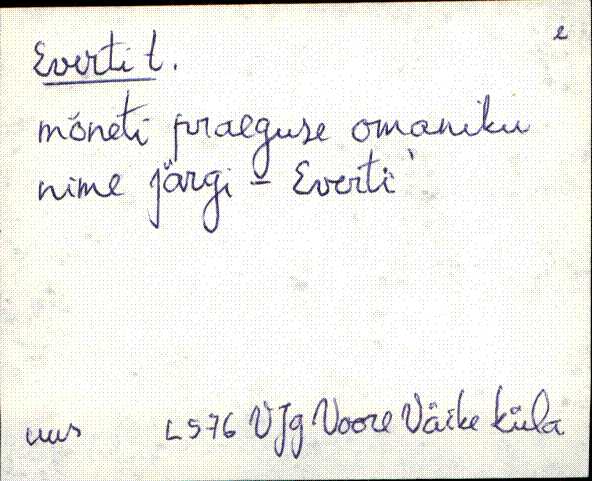 e
Everti t.
mõneti praeguse omaniku
nime järgi – Everti'
uus L576 VJg Voore Väike küla